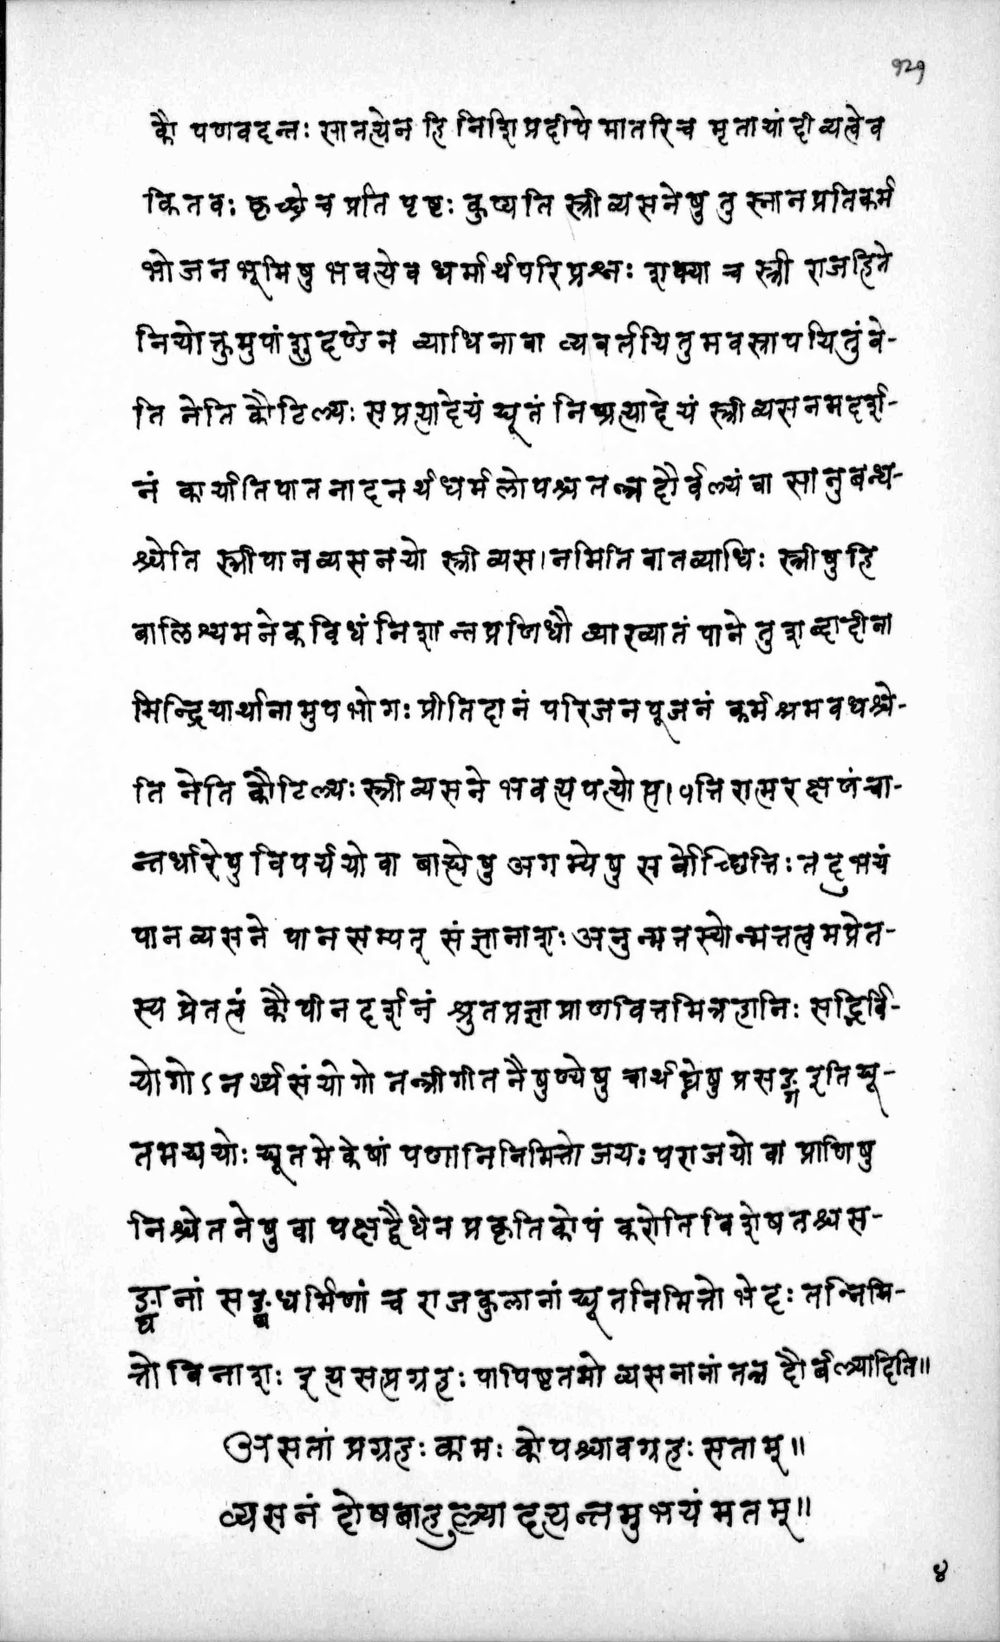 १२१
कौ पणवदन्तः सातत्येन हि निशि प्रदीपे मातरि च मृतायां दीव्यत्येव
कितवः कृच्छ्रे च प्रति पृष्टः कुप्यति स्त्रीव्यसनेषु तु स्नान प्रतिकर्म
भोजन भूमिषु भवत्येव धर्मार्थपरिप्रश्नः शक्या च स्त्री राजहिते
नियोक्तुमुपांशुदण्डेन व्याधिना वा व्यवर्तयितुमवस्रापयितुं वे-
ति नेति कौटिल्यः सप्रत्यादेयं द्यूतं निष्प्रत्यादेयं स्त्रीव्यसनमदर्श-
नं कार्यातिपातनादनर्थधर्मलोपश्च तन्त्रदौर्बल्यं वा सानुबन्ध-
श्चेति स्त्रीपानव्यसनयो स्त्रीव्यस।नमिति वातव्याधिः स्त्रीषु हि
बालिश्यमनेकविधं निशान्तप्रणिधौ व्याख्यातं पाने तु शब्दादीना
मिन्द्रियार्थानामुपभोगः प्रीतिदानं परिजनपूजनं कर्मश्रमवधश्चे-
ति नेति कौटिल्यः स्त्रीव्यसने भवत्यपत्योत्प।पत्तिरात्मरक्षणं चा-
न्तर्धारेषु विपर्ययो वा बाह्येषु अगम्येषु सर्वोच्छित्तिः तदुभयं
पानव्यसने पानसम्पत् संज्ञानाशः अनुन्मत्तस्योन्मत्तत्वमप्रेत-
स्य प्रेतत्वं कौपीनदर्शनं श्रुतप्रज्ञाप्राणवित्तमित्रहानिः सद्भिर्वि-
योगोऽनर्थ्यसंयोगो तन्त्रीगीतनैषुण्येषु चार्थघ्नेषु प्रसङ्ग इति द्यू-
तमद्ययोः द्यूतमेकेषां पणानिनिमित्तो जयः पराजयो वा प्राणिषु
निश्चेतनेषु वा पक्षद्वैधेन प्रकृतिकोपं करोति विशेषतश्च स-
ङ्घानां सङ्घधर्मिणां च राजकुलानां द्यूतनिमित्तो भेदः तन्निमि-
त्तो विनाशः इत्यसत्प्रग्रहः पापिष्टतमो व्यसनानां तन्त्र दौर्बल्यादिति॥
असतां प्रग्रहः कामः कोपश्चावग्रहः सताम्॥
व्यसनं दोषबाहुल्यादत्यन्तमुभयं मतम्॥
४